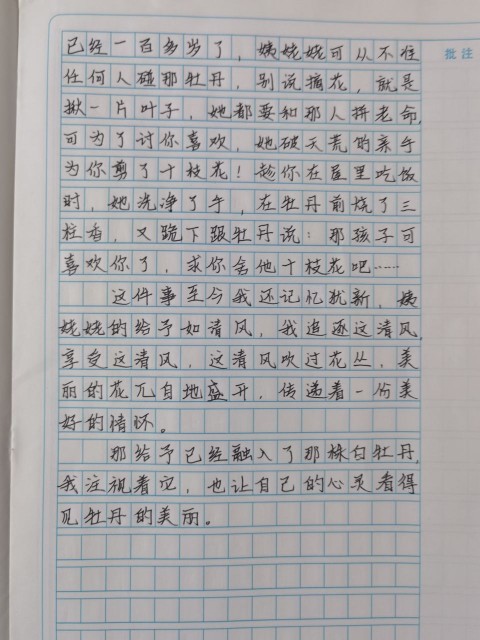 批注
已经一百多岁了，姨姥姥可从不准
任何人碰那牡丹，别说摘花，就是
揪一片叶子，她都要和那人拼老命，
可为了讨你喜欢，她破天荒的亲手
为你剪了十枝花！趁你在屋里吃饭
时，她洗净了手，在牡丹前烧了三
柱香，又跪下跟牡丹说：那孩子可
喜欢你了，求你舍他十枝花吧……
这件事至今我还记忆犹新，姨
姥姥的给予如清风，我追逐这清风，
享受这清风，这清风吹过花丛，美
丽的花兀自地盛开，传递着一份美
好的情怀。
那给予已经融入了那株白牡丹，
我注视着它，也让自己的心灵看得
见牡丹的美丽。